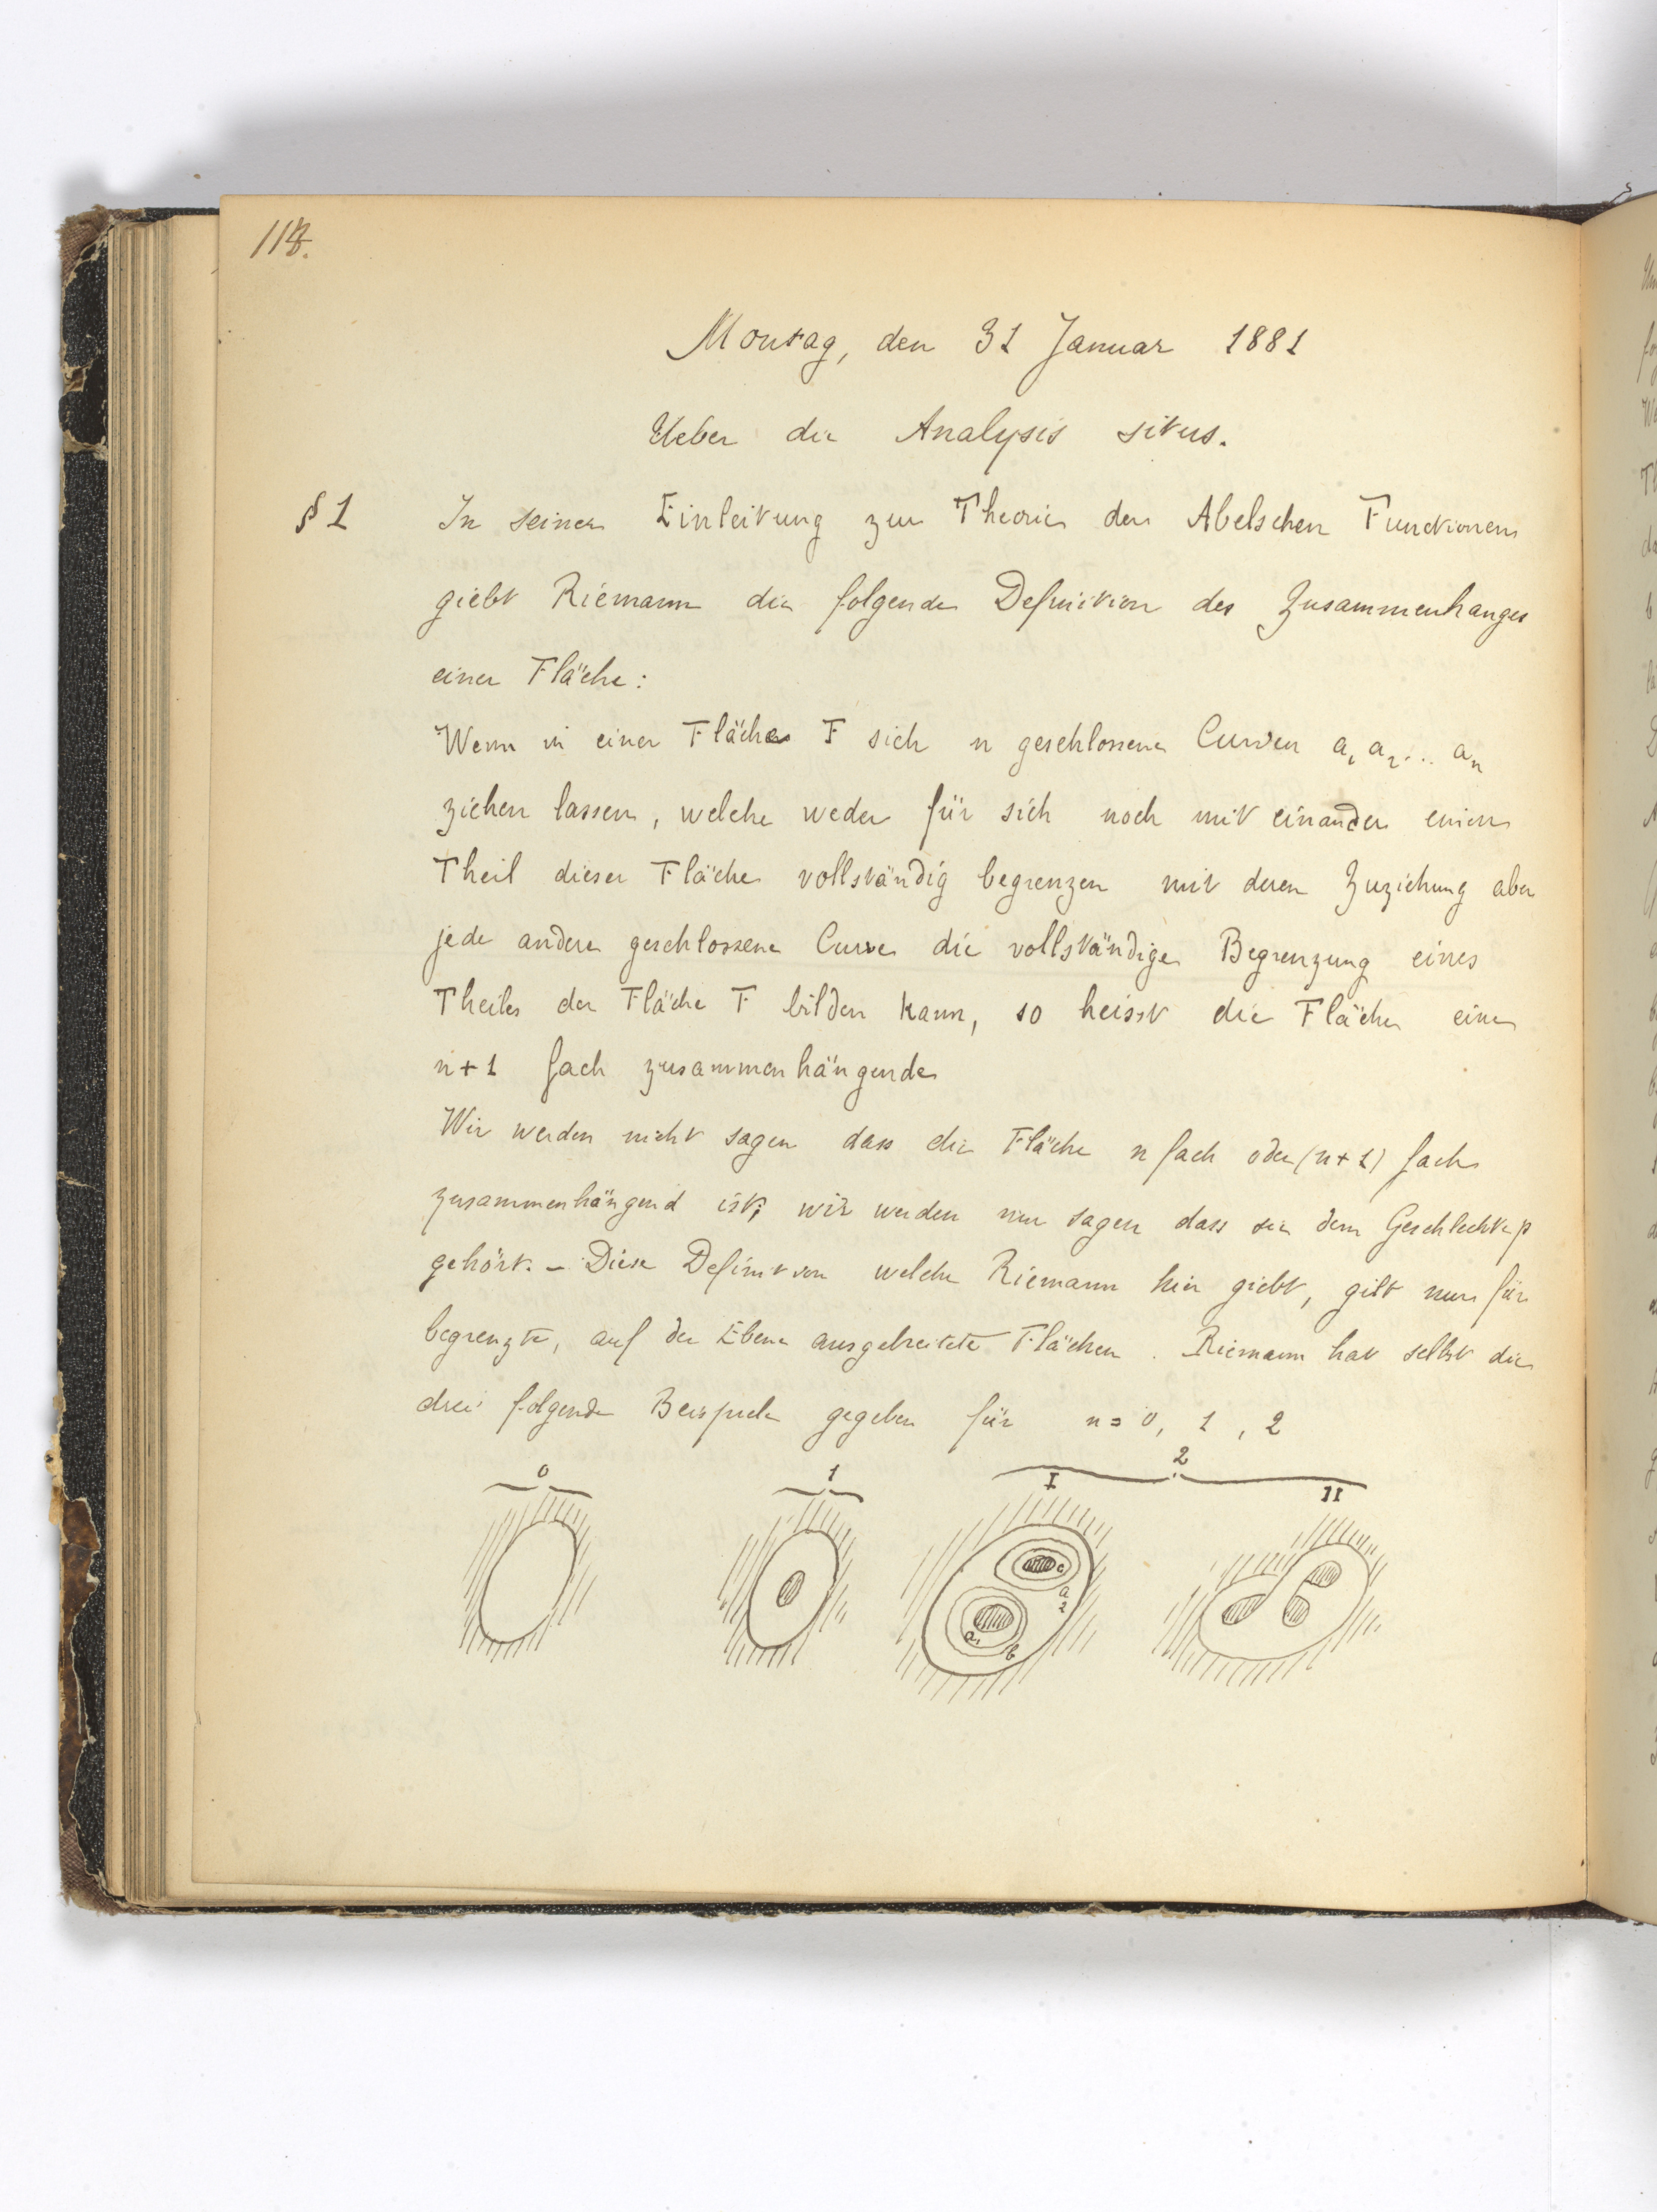 118.
Montag, den 31 Januar 1881
Ueber die Analysis situs.
§ 1 In seiner Einleitung zur Theorie der Abelschen Functionen
giebt Riemann die folgende Definition des Zusammenhanges
einer Fläche:
Wenn in einer Fläche F sich n geschlossene Curven a₁ a₂ ... aₙ
ziehen lassen, welche weder für sich noch mit einander einen
Theil dieser Fläche vollständig begrenzen mit deren Zuziehung aber
jede andere geschlossene Curve die vollständige Begrenzung eines
Theiles der Fläche F bilden kann, so heisst die Fläche eine
n+1 fach zusammenhängende
Wir werden nicht sagen dass die Fläche n fach oder (n+1) fach
zusammenhängend ist; wir werden nur sagen dass sie dem Geschlechte p
gehört. – Diese Definition welche Riemann hier giebt, gilt nur für
begrenzte, auf der Ebene ausgebreitete Flächen. Riemann hat selbst die
drei folgende Beispiele gegeben für n = 0, 1, 2
0 1 2
I II
c
a₂
a₁ b